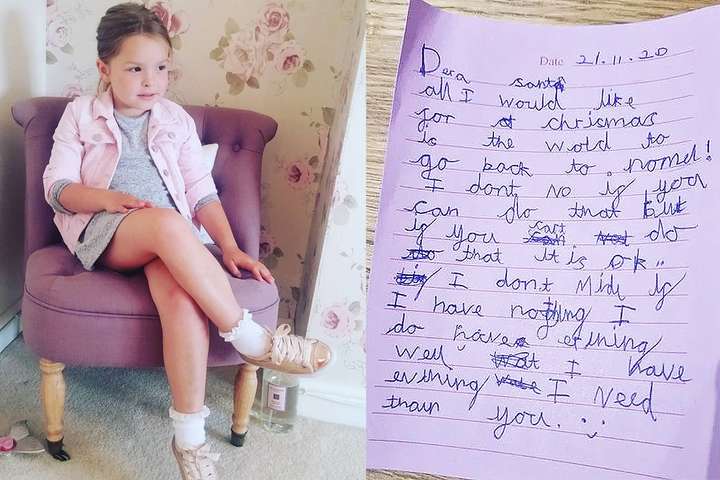 Date 21.11.20
Dera santa
all I would like
for chrismas
is the world to
go back to nomel!
I dont no if you
can do that but
if you cart do
that it is ok..
I don.t Mind if
I have nothing I
do have erthing
well I have
evrthing I Need
than you. :-)